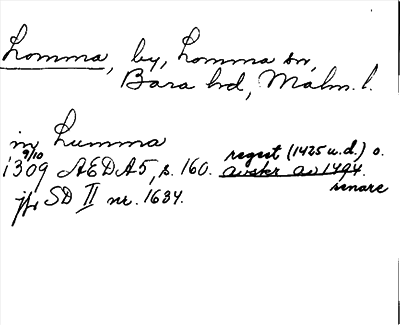 Lomma, by, Lomma sn,
Bara hd, Malm. l.
in Lumma
9/10
1309 AEDA5, s. 160. regest (1425 u.d.) o.
avskr av 1494.
senare
jfr SD II nr. 1634.